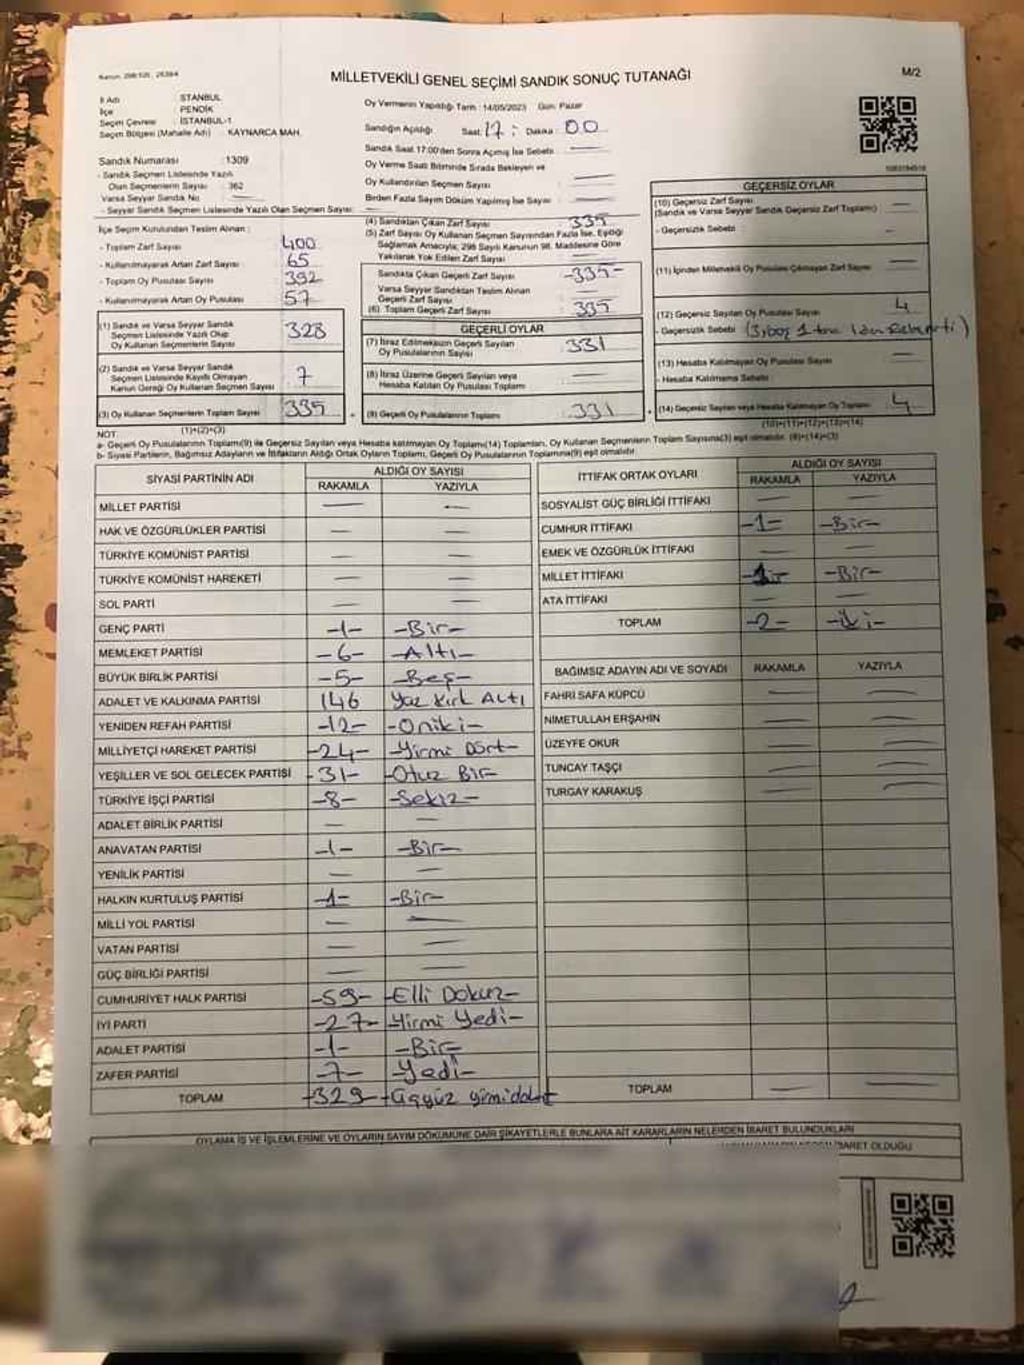 MİLLETVEKİLİ GENEL SEÇİMİ SANDIK SONUÇ TUTANAĞI
M/2
İl Adı : İSTANBUL
İlçe : PENDİK
Seçim Çevresi : İSTANBUL-1
Seçim Bölgesi (Mahalle Adı) : KAYNARCA MAH.
Sandık Numarası : 1309
- Sandık Seçmen Listesinde Yazılı
Olan Seçmenlerin Sayısı : 362
Varsa Seyyar Sandık No
- Seyyar Sandık Seçmen Listesinde Yazılı Olan Seçmen Sayısı:
İlçe Seçim Kurulundan Teslim Alınan :
- Toplam Zarf Sayısı 400
- Kullanılmayarak Artan Zarf Sayısı 65
- Toplam Oy Pusulası Sayısı 392
- Kullanılmayarak Artan Oy Pusulası 57
(1) Sandık ve Varsa Seyyar Sandık
Seçmen Listesinde Yazılı Olup
Oy Kullanan Seçmenlerin Sayısı 328
(2) Sandık ve Varsa Seyyar Sandık
Seçmen Listesinde Kayıtlı Olmayan
Kanun Gereği Oy Kullanan Seçmen Sayısı 7
(3) Oy Kullanan Seçmenlerin Toplam Sayısı 335
(1)+(2)=(3)
Oy Vermenin Yapıldığı Tarih : 14/05/2023 Gün: Pazar
Sandığın Açıldığı Saat: 17 : Dakika : 00
Sandık Saat 17:00'den Sonra Açılmış İse Sebebi
Oy Verme Saati Bitiminde Sırada Bekleyen ve
Oy Kullandırılan Seçmen Sayısı
Birden Fazla Sayım Döküm Yapılmış İse Sayısı
(4) Sandıktan Çıkan Zarf Sayısı 335
(5) Zarf Sayısı Oy Kullanan Seçmen Sayısından Fazla İse, Eşitliği
Sağlamak Amacıyla; 298 Sayılı Kanunun 98. Maddesine Göre
Yakılarak Yok Edilen Zarf Sayısı
Sandıkta Çıkan Geçerli Zarf Sayısı -335-
Varsa Seyyar Sandıktan Teslim Alınan
Geçerli Zarf Sayısı
(6) Toplam Geçerli Zarf Sayısı 335
GEÇERLİ OYLAR
(7) İtiraz Edilmeksizin Geçerli Sayılan
Oy Pusulalarının Sayısı 331
(8) İtiraz Üzerine Geçerli Sayılan veya
Hesaba Katılan Oy Pusulası Toplamı
(9) Geçerli Oy Pusulalarının Toplamı 331
GEÇERSİZ OYLAR
(10) Geçersiz Zarf Sayısı
(Sandık ve Varsa Seyyar Sandık Geçersiz Zarf Toplamı)
- Geçersizlik Sebebi :
(11) İçinden Milletvekili Oy Pusulası Çıkmayan Zarf Sayısı
(12) Geçersiz Sayılan Oy Pusulası Sayısı 4
- Geçersizlik Sebebi
(13) Hesaba Katılmayan Oy Pusulası Sayısı
- Hesaba Katılmama Sebebi
(14) Geçersiz Sayılan veya Hesaba Katılmayan Oy Toplamı 4
(10)+(11)+(12)+(13)=(14)
NOT:
a- Geçerli Oy Pusulalarının Toplamı(9) ile Geçersiz Sayılan veya Hesaba katılmayan Oy Toplamı(14) Toplamları, Oy Kullanan Seçmenlerin Toplam Sayısına(3) eşit olmalıdır. (9)+(14)=(3)
b- Siyasi Partilerin, Bağımsız Adayların ve İttifakların Aldığı Ortak Oyların Toplamı, Geçerli Oy Pusulalarının Toplamına(9) eşit olmalıdır.
SİYASİ PARTİNİN ADI ALDIĞI OY SAYISI
RAKAMLA YAZIYLA
MİLLET PARTİSİ
HAK VE ÖZGÜRLÜKLER PARTİSİ
TÜRKİYE KOMÜNİST PARTİSİ
TÜRKİYE KOMÜNİST HAREKETİ
SOL PARTİ
GENÇ PARTİ -1- -Bir-
MEMLEKET PARTİSİ -6- -Altı-
BÜYÜK BİRLİK PARTİSİ -5- -Beş-
ADALET VE KALKINMA PARTİSİ 146 Yüz Kırk Altı
YENİDEN REFAH PARTİSİ -12- -Oniki-
MİLLİYETÇİ HAREKET PARTİSİ -24- -Yirmi Dört-
YEŞİLLER VE SOL GELECEK PARTİSİ -31- -Otuz Bir-
TÜRKİYE İŞÇİ PARTİSİ -8- -Sekiz-
ADALET BİRLİK PARTİSİ
ANAVATAN PARTİSİ -1- -Bir-
YENİLİK PARTİSİ
HALKIN KURTULUŞ PARTİSİ -1- -Bir-
MİLLİ YOL PARTİSİ
VATAN PARTİSİ
GÜÇ BİRLİĞİ PARTİSİ
CUMHURİYET HALK PARTİSİ -59- -Elli Dokuz-
İYİ PARTİ -27- -Yirmi Yedi-
ADALET PARTİSİ -1- -Bir-
ZAFER PARTİSİ -7- -Yedi-
TOPLAM -329-
İTTİFAK ORTAK OYLARI ALDIĞI OY SAYISI
RAKAMLA YAZIYLA
SOSYALİST GÜÇ BİRLİĞİ İTTİFAKI
CUMHUR İTTİFAKI -1- -Bir-
EMEK VE ÖZGÜRLÜK İTTİFAKI
MİLLET İTTİFAKI -Bir-
ATA İTTİFAKI
TOPLAM -2- -iki-
BAĞIMSIZ ADAYIN ADI VE SOYADI RAKAMLA YAZIYLA
FAHRİ SAFA KÜPCÜ
NİMETULLAH ERŞAHİN
ÜZEYFE OKUR
TUNCAY TAŞÇI
TURGAY KARAKUŞ
TOPLAM
OYLAMA İŞ VE İŞLEMLERİNE VE OYLARIN SAYIM DÖKÜMÜNE DAİR ŞİKAYETLERLE BUNLARA AİT KARARLARIN NELERDEN İBARET BULUNDUKLARI